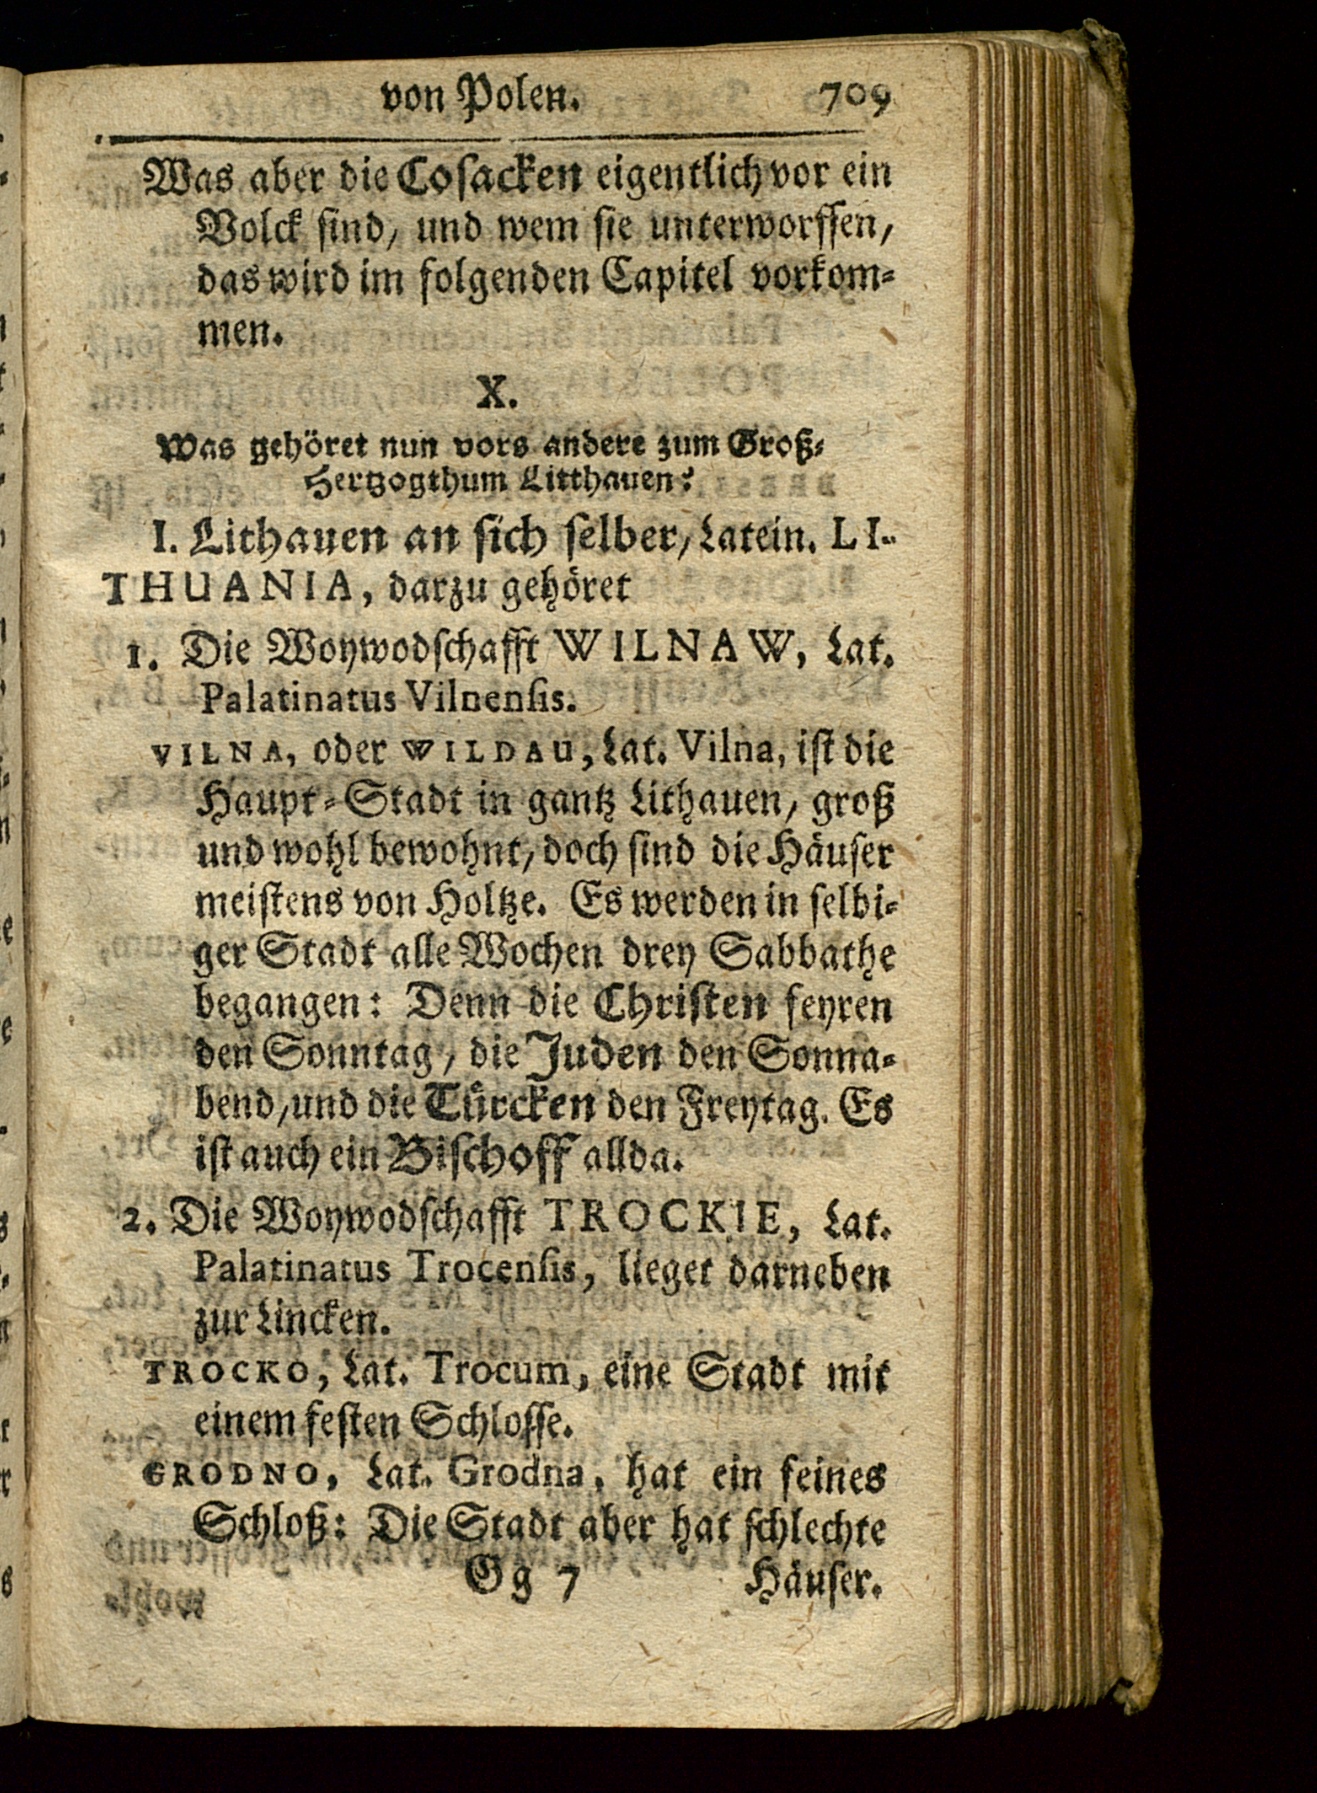 von Polen. 709
Was aber die Cosacken eigentlich vor ein
Volck sind, und wem sie unterworffen,
das wird im folgenden Capitel vorkom-
men.
X.
Was gehöret nun vors andere zum Groß-
Hertzogthum Litthauen?
I. Lithauen an sich selber, Latein. LI-
THUANIA, darzu gehöret
1. Die Woywodschafft WILNAW, Lat.
Palatinatus Vilnensis.
VILNA, oder WILDAU, Lat. Vilna, ist die
Haupt-Stadt in gantz Lithauen, groß
und wohl bewohnt, doch sind die Häuser
meistens von Holtze. Es werden in selbi-
ger Stadt alle Wochen drey Sabbathe
begangen: Denn die Christen feyren
den Sonntag, die Juden den Sonna-
bend, und die Türcken den Freytag. Es
ist auch ein Bischoff allda.
2. Die Woywodschafft TROCKIE, Lat.
Palatinatus Trocensis, lieget darneben
zur Lincken.
TROCKO, Lat. Trocum, eine Stadt mit
einem festen Schlosse.
GRODNO, Lat. Grodna, hat ein feines
Schloß: Die Stadt aber hat schlechte
Gg 7 Häuser.